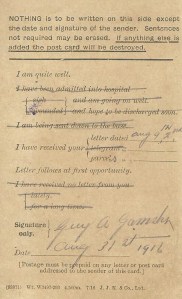 NOTHING is to be written on this side except
the date and signature of the sender. Sentences
not required may be erased. If anything else is
added the post card will be destroyed.
I am quite well.
I have been admitted into hospital
sick and am going on well.
wounded and hope to be discharged soon.
I am being sent down to the base.
letter dated Aug
I have received your telegram
parcel
Letter follows at first opportunity.
I have received no letter from you
lately.
for a long time.
Signature
only.
Date Aug 31st 1916
[Postage must be prepaid on any letter or post card
addressed to the sender of this card.]